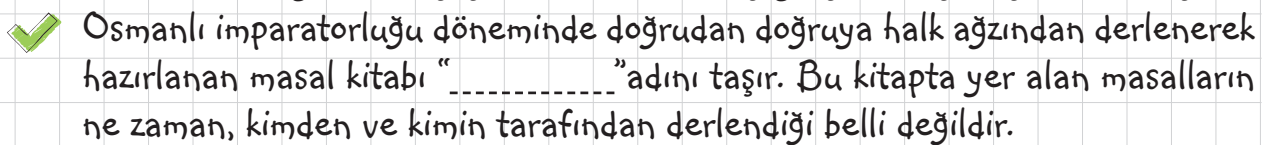 Osmanlı imparatorluğu döneminde doğrudan doğruya halk ağzından derlenerek
hazırlanan masal kitabı “_____________”adını taşır. Bu kitapta yer alan masalların
ne zaman, kimden ve kimin tarafından derlendiği belli değildir.